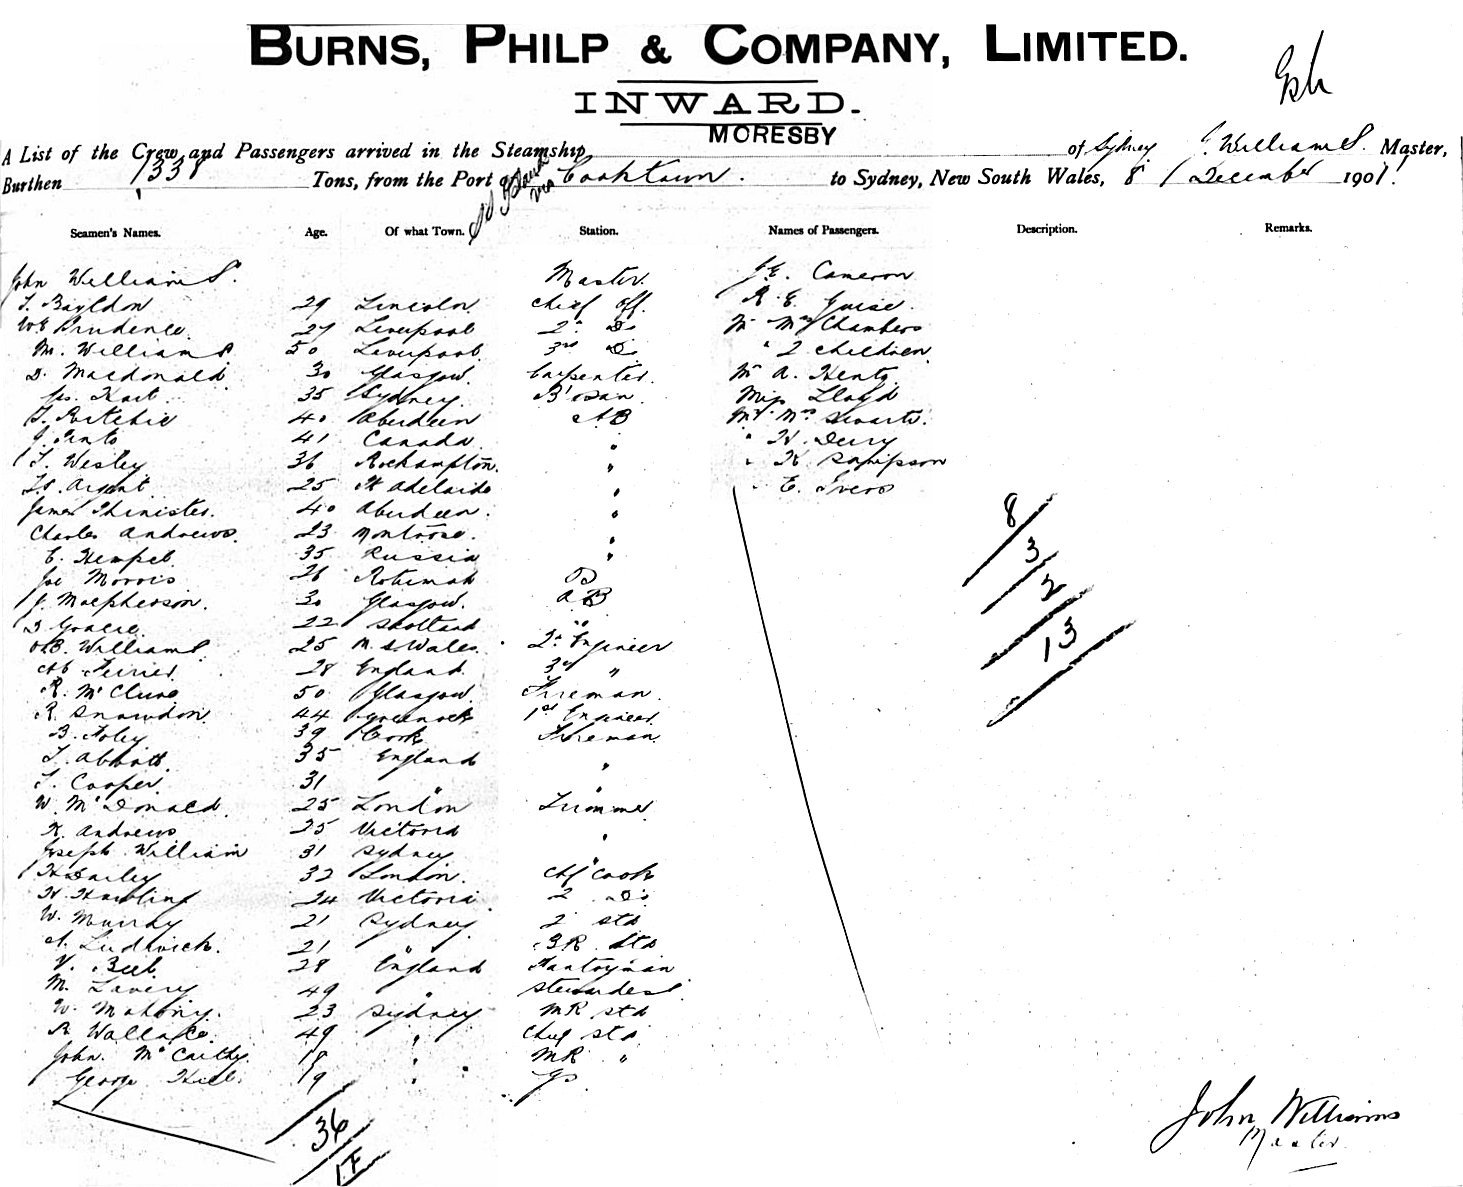 BURNS, PHILP & COMPANY, LIMITED.
INWARD.
MORESBY
A List of the Crew and Passengers arrived in the Steamship of Sydney J. Williams. Master,
Burthen 1338 Tons, from the Port of via Cooktown. to Sydney, New South Wales, 8 December 1901.
Seamen's Names. Age. Of what Town. Station. Names of Passengers. Description. Remarks.
John Williams. Master. Cameron
T. Bayldon 29 Lincoln Chief Off. R. E. Guise.
WE Prudence 27 Liverpool 2nd Do Mr Mrs Chambers
M. Williams 50 Liverpool 3rd Do " 2 children.
D. Macdonald 30 Glasgow. Carpenter. Mr A. Kents
Jas. Hart 35 Sydney. B'osan Miss Lloyd
Ritchie 40 Aberdeen AB Mr Mrs Swarts.
J. 41 Canada " " H. Derry
T. Wesley 36 Rockhampton. " " K. Sampson
Argent 25 Pt Adelaide " " E. Ivers
James Thinister. 40 Aberdeen. " 8
Charles Andrews. 23 Montrose. " 3
E. Hempel 35 Russia " 2
Joe Morris 26 13
J. Macpherson. 30 Glasgow. AB
Gracie 22 Scotland "
Williams. 25 N. S. Wales. 2nd Engineer
Ferrier. 28 England 3rd "
R. McClure 50 Glasgow Fireman.
R. Snowdon 44 Greenock 1st Engineer
B. Foley 39 Cork Fireman.
T. Abbott. 35 England "
T. Cooper. 31 " "
W. McDonald. 25 London Trimmer
K. Andrews 25 Victoria "
Joseph William 31 Sydney "
H Dailey 32 London. Chf Cook
H. Hawling 24 Victoria. 2 Do
W. Murray 21 Sydney 2 Std
A. Ludwick. 21 " Std
V. Bull 28 England Pantryman
M. Lavery 49 " Stewardess.
W. Mahony. 23 Sydney MR Std
R. Wallace. 49 " Chief Std
John. McCarthy. 18 " MR "
George Hill. 19 " " Gs
36
1F
John Williams
Master